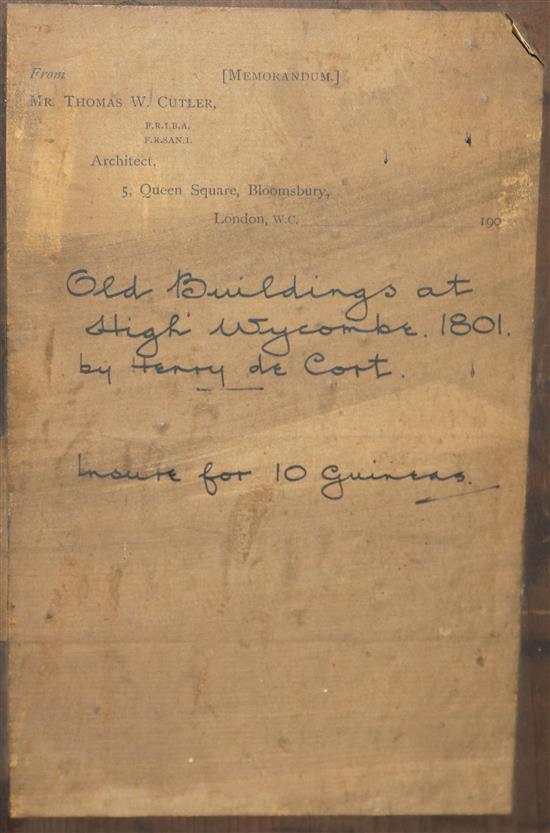 From [MEMORANDUM.]
MR. THOMAS W. CUTLER,
F.R.I.B.A.
F.R.SAN.I.
Architect,
5, Queen Square, Bloomsbury,
London, W.C. 190
Old Buildings at
High Wycombe. 1801.
by Henry de Cort.
Insure for 10 Guineas.